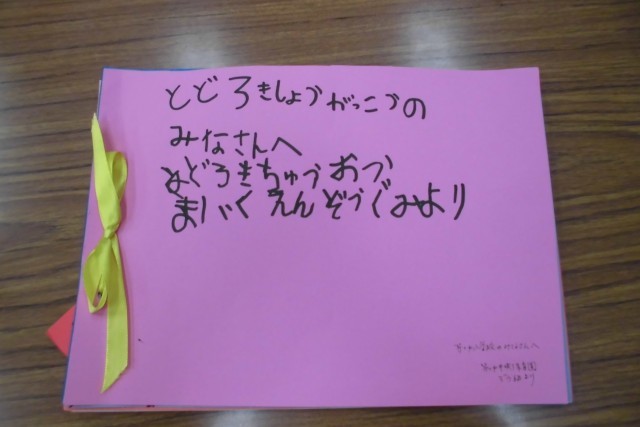 とどろきしょうがっこうの
みなさんへ
とどろきちゅうおう
ほいくえんぞうぐみより